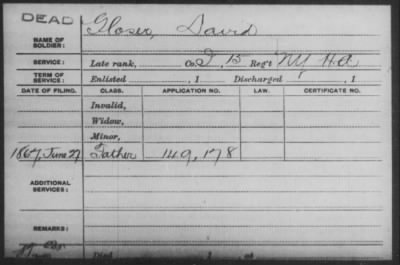 DEAD
NAME OF SOLDIER: Gloser, David
SERVICE: Late rank, Co. I, 15 Reg't NY HA
TERM OF SERVICE: Enlisted , 1 Discharged , 1
DATE OF FILING. CLASS. APPLICATION NO. LAW. CERTIFICATE NO.
Invalid,
Widow,
Minor,
1867, June 27 Father 149,178
ADDITIONAL SERVICES:
REMARKS:
Died , 1 at